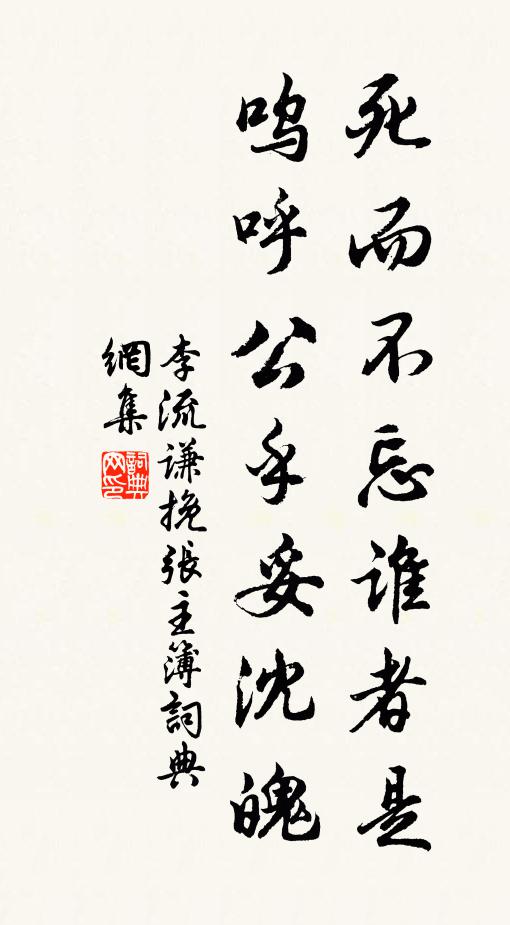 死而不忘谁者是
呜呼公乎妥沈魄
李流谦挽張主簿詞典
網集
詞典网印